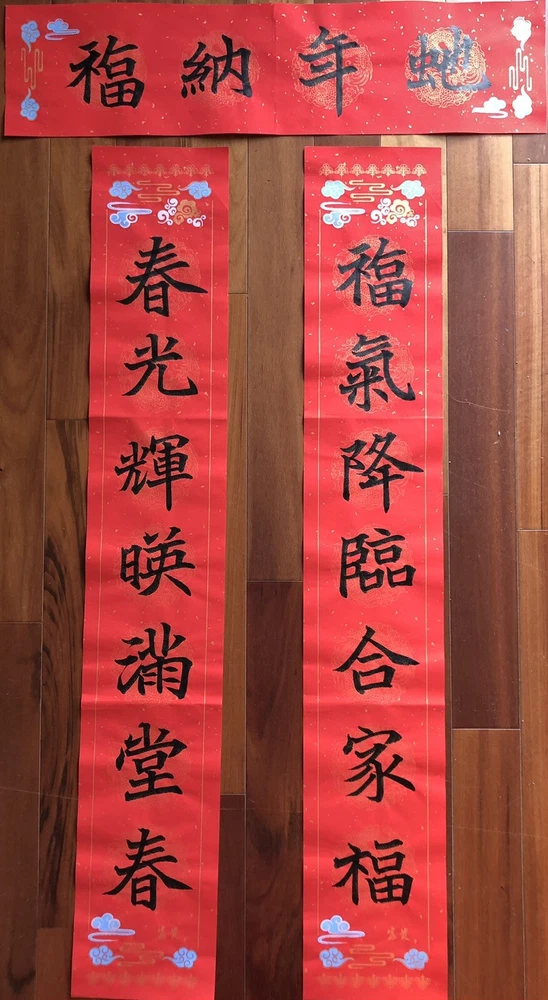 蛇年納福
福氣降臨合家福
春光輝暎滿堂春